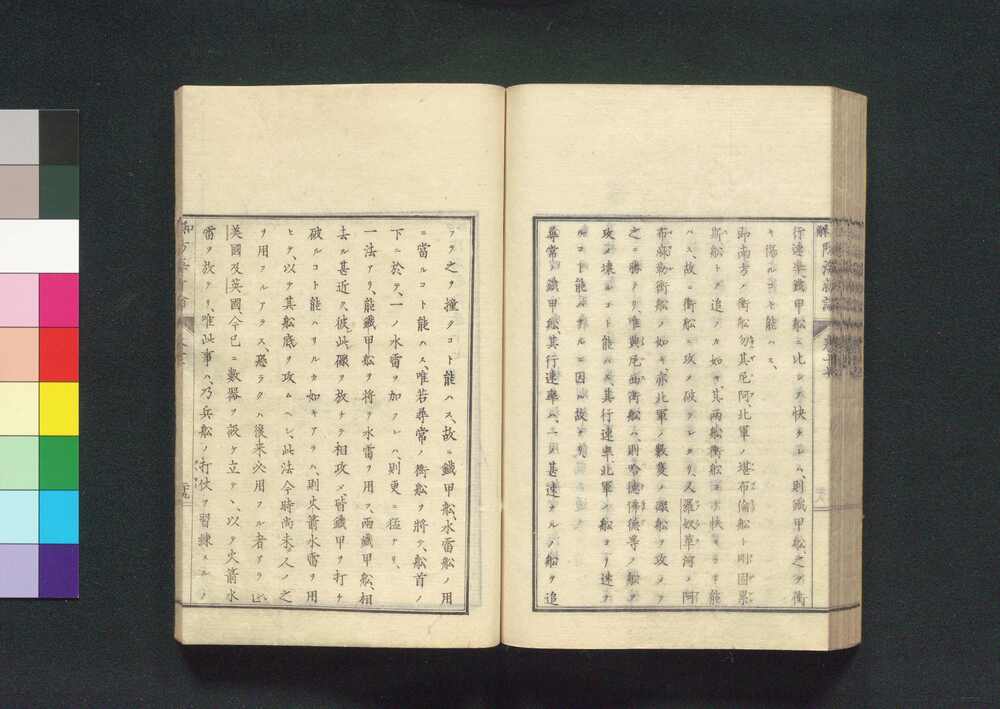 行速率、鐵甲船ニ比シテ快カラシム、則鐵甲船、之ヲ衝
キ傷ルコト能ハス、
即南考ノ衝船勿其尼阿北軍ノ堪布倫船ト剛固累
斯船トヲ追フカ如キ、其両船衝船ヨリ快キヲ能
ハス、故ニ衝船ニ攻メ破ラレタリ、又羅奴華河ニ阿
布麻勒衝船ノ如キ、亦北軍ノ數隻ノ礮船ヲ攻メ
之ニ勝タリ、唯與尼西衝船ハ、則哈德佛德等ノ船ヲ
攻メ壊ルコト能ハス、其行速率、北軍ノ船ヨリ速ナ
ルコト能ハサルニ因ル故ナリ
尋常ノ鐵甲船、其行速率ハ、甚速ナルノ船ヲ追
フテ之ヲ撞クコト能ハス、故ニ鐵甲船、水雷船ノ用
ニ當ルコト能ハス、唯若尋常ノ衝船ヲ將テ、船首ノ
下ニ於テ、一ノ水雷ヲ加フレハ、則更ニ猛ナリ、
一法アリ、能鐵甲船ヲ將テ水雷ヲ用フ、両鐵甲船、相
去ル甚近ク、彼此礮ヲ放チテ相攻メ、皆鐵甲ヲ打チ
破ルコト能ハサルカ如キアラハ、則火箭水雷ヲ用
ヒテ、以テ其船底ヲ攻ムヘシ、此法今時尚未人ノ之
ヲ用フルアラス、恐ラクハ後来必用フル者アラン
美國及英國、今已ニ數器ヲ設ケ立テ、以テ火箭水
雷ヲ放テリ、唯此事ハ、乃兵船ノ打仗ヲ習練スルノ